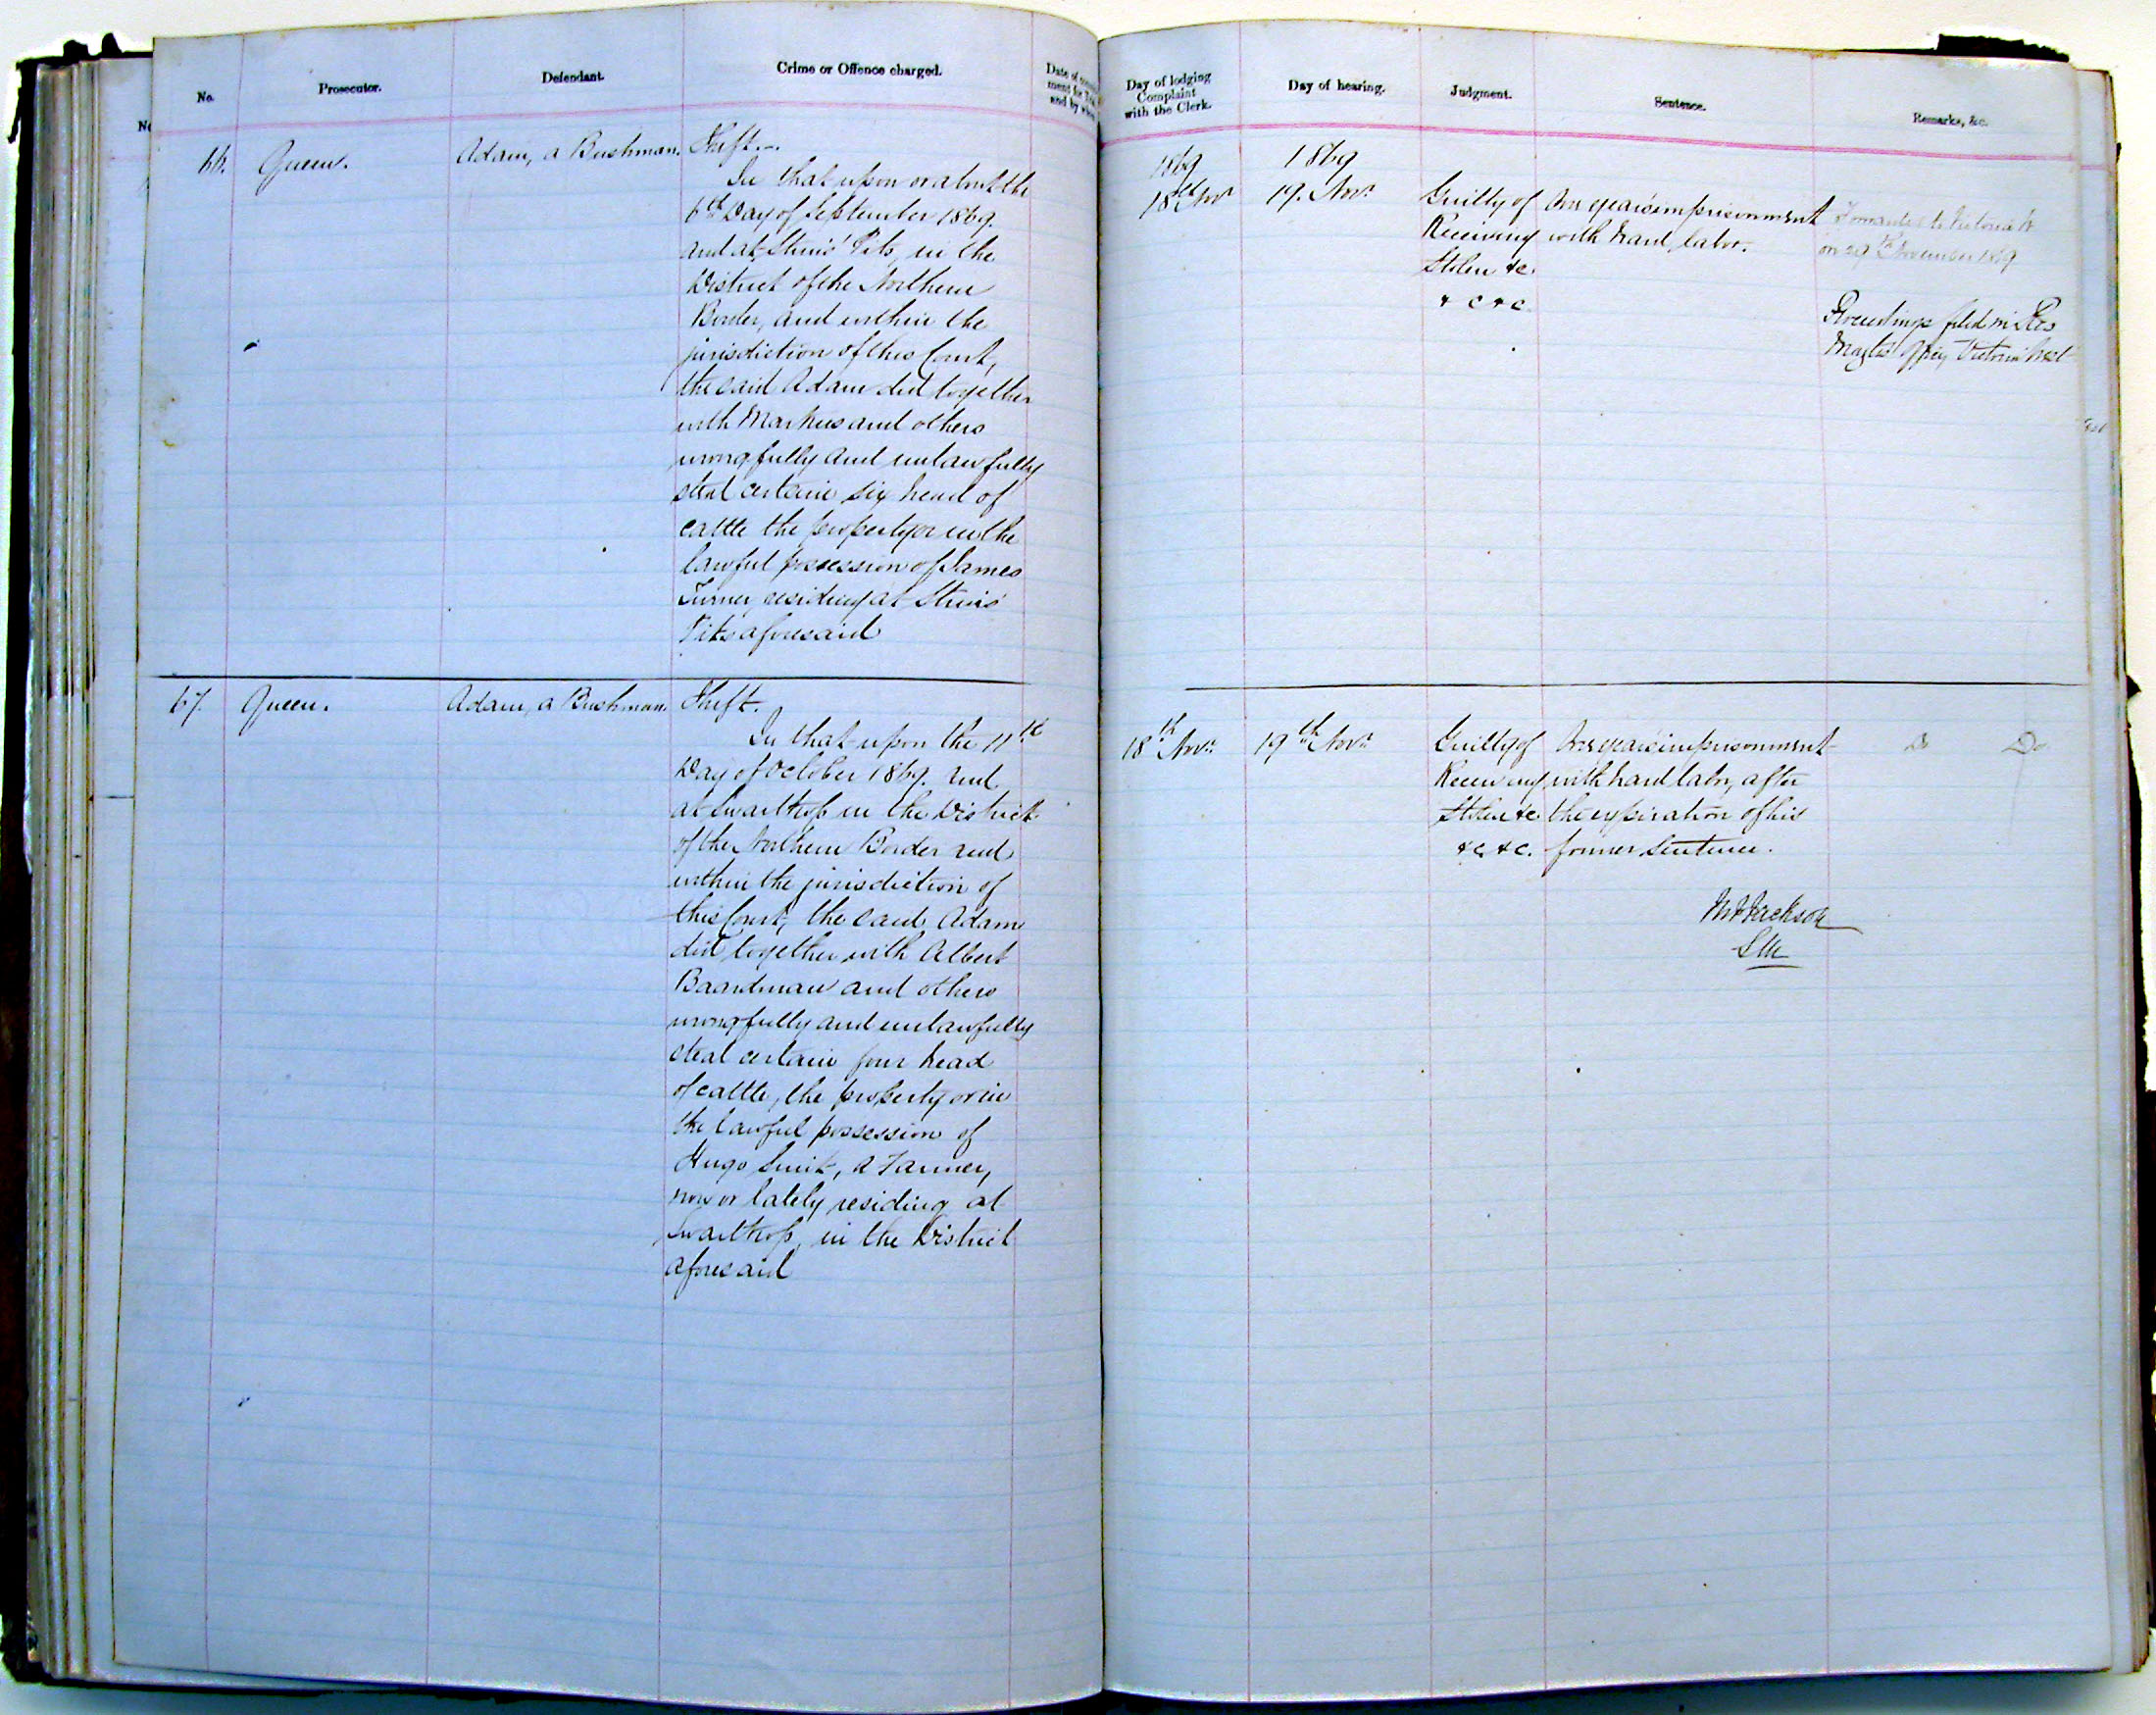 No.
Prosecutor.
Defendant.
Crime or Offence charged.
Day of lodging
Complaint
with the Clerk.
Day of hearing.
Judgment.
Sentence.
Remarks, &c.
66.
Queen.
Adam, a Bushman.
Theft.-.
In that upon or about the
6th Day of September 1869.
and at Struis' Pits, in the
District of the Northern
Border, and within the
jurisdiction of this Court,
the said Adam did together
with Markus and others
wrongfully and unlawfully
steal certain six head of
cattle the property or in the
lawful possession of James
Turner, residing at Struis'
Pits aforesaid
1869
18th Novr
1869
19. Novr
Guilty of
Receiving
Stolen &c.
&c &c.
One year's imprisonment
with hard labor.
Forwarded to Victoria W
on 29th November 1869
Proceedings filed in Res
Magtes' Office, Victoria West
67.
Queen.
Adam, a Bushman.
Theft.
In that upon the 11th
Day of October 1869. and
at Swarthop in the District
of the Northern Border and
within the jurisdiction of
this Court, the said Adam
did together with Albert
Baardman and others
wrongfully and unlawfully
steal certain four head
of cattle, the property or in
the lawful possession of
Hugo Smit, a Farmer,
now or lately residing at
Swarthop, in the District
aforesaid
18th Novr
19th Novr
Guilty of
Receiving
Stolen &c.
&c &c.
One year's imprisonment
with hard labor, after
the expiration of his
former Sentence.
Do Do
Jackson
SM